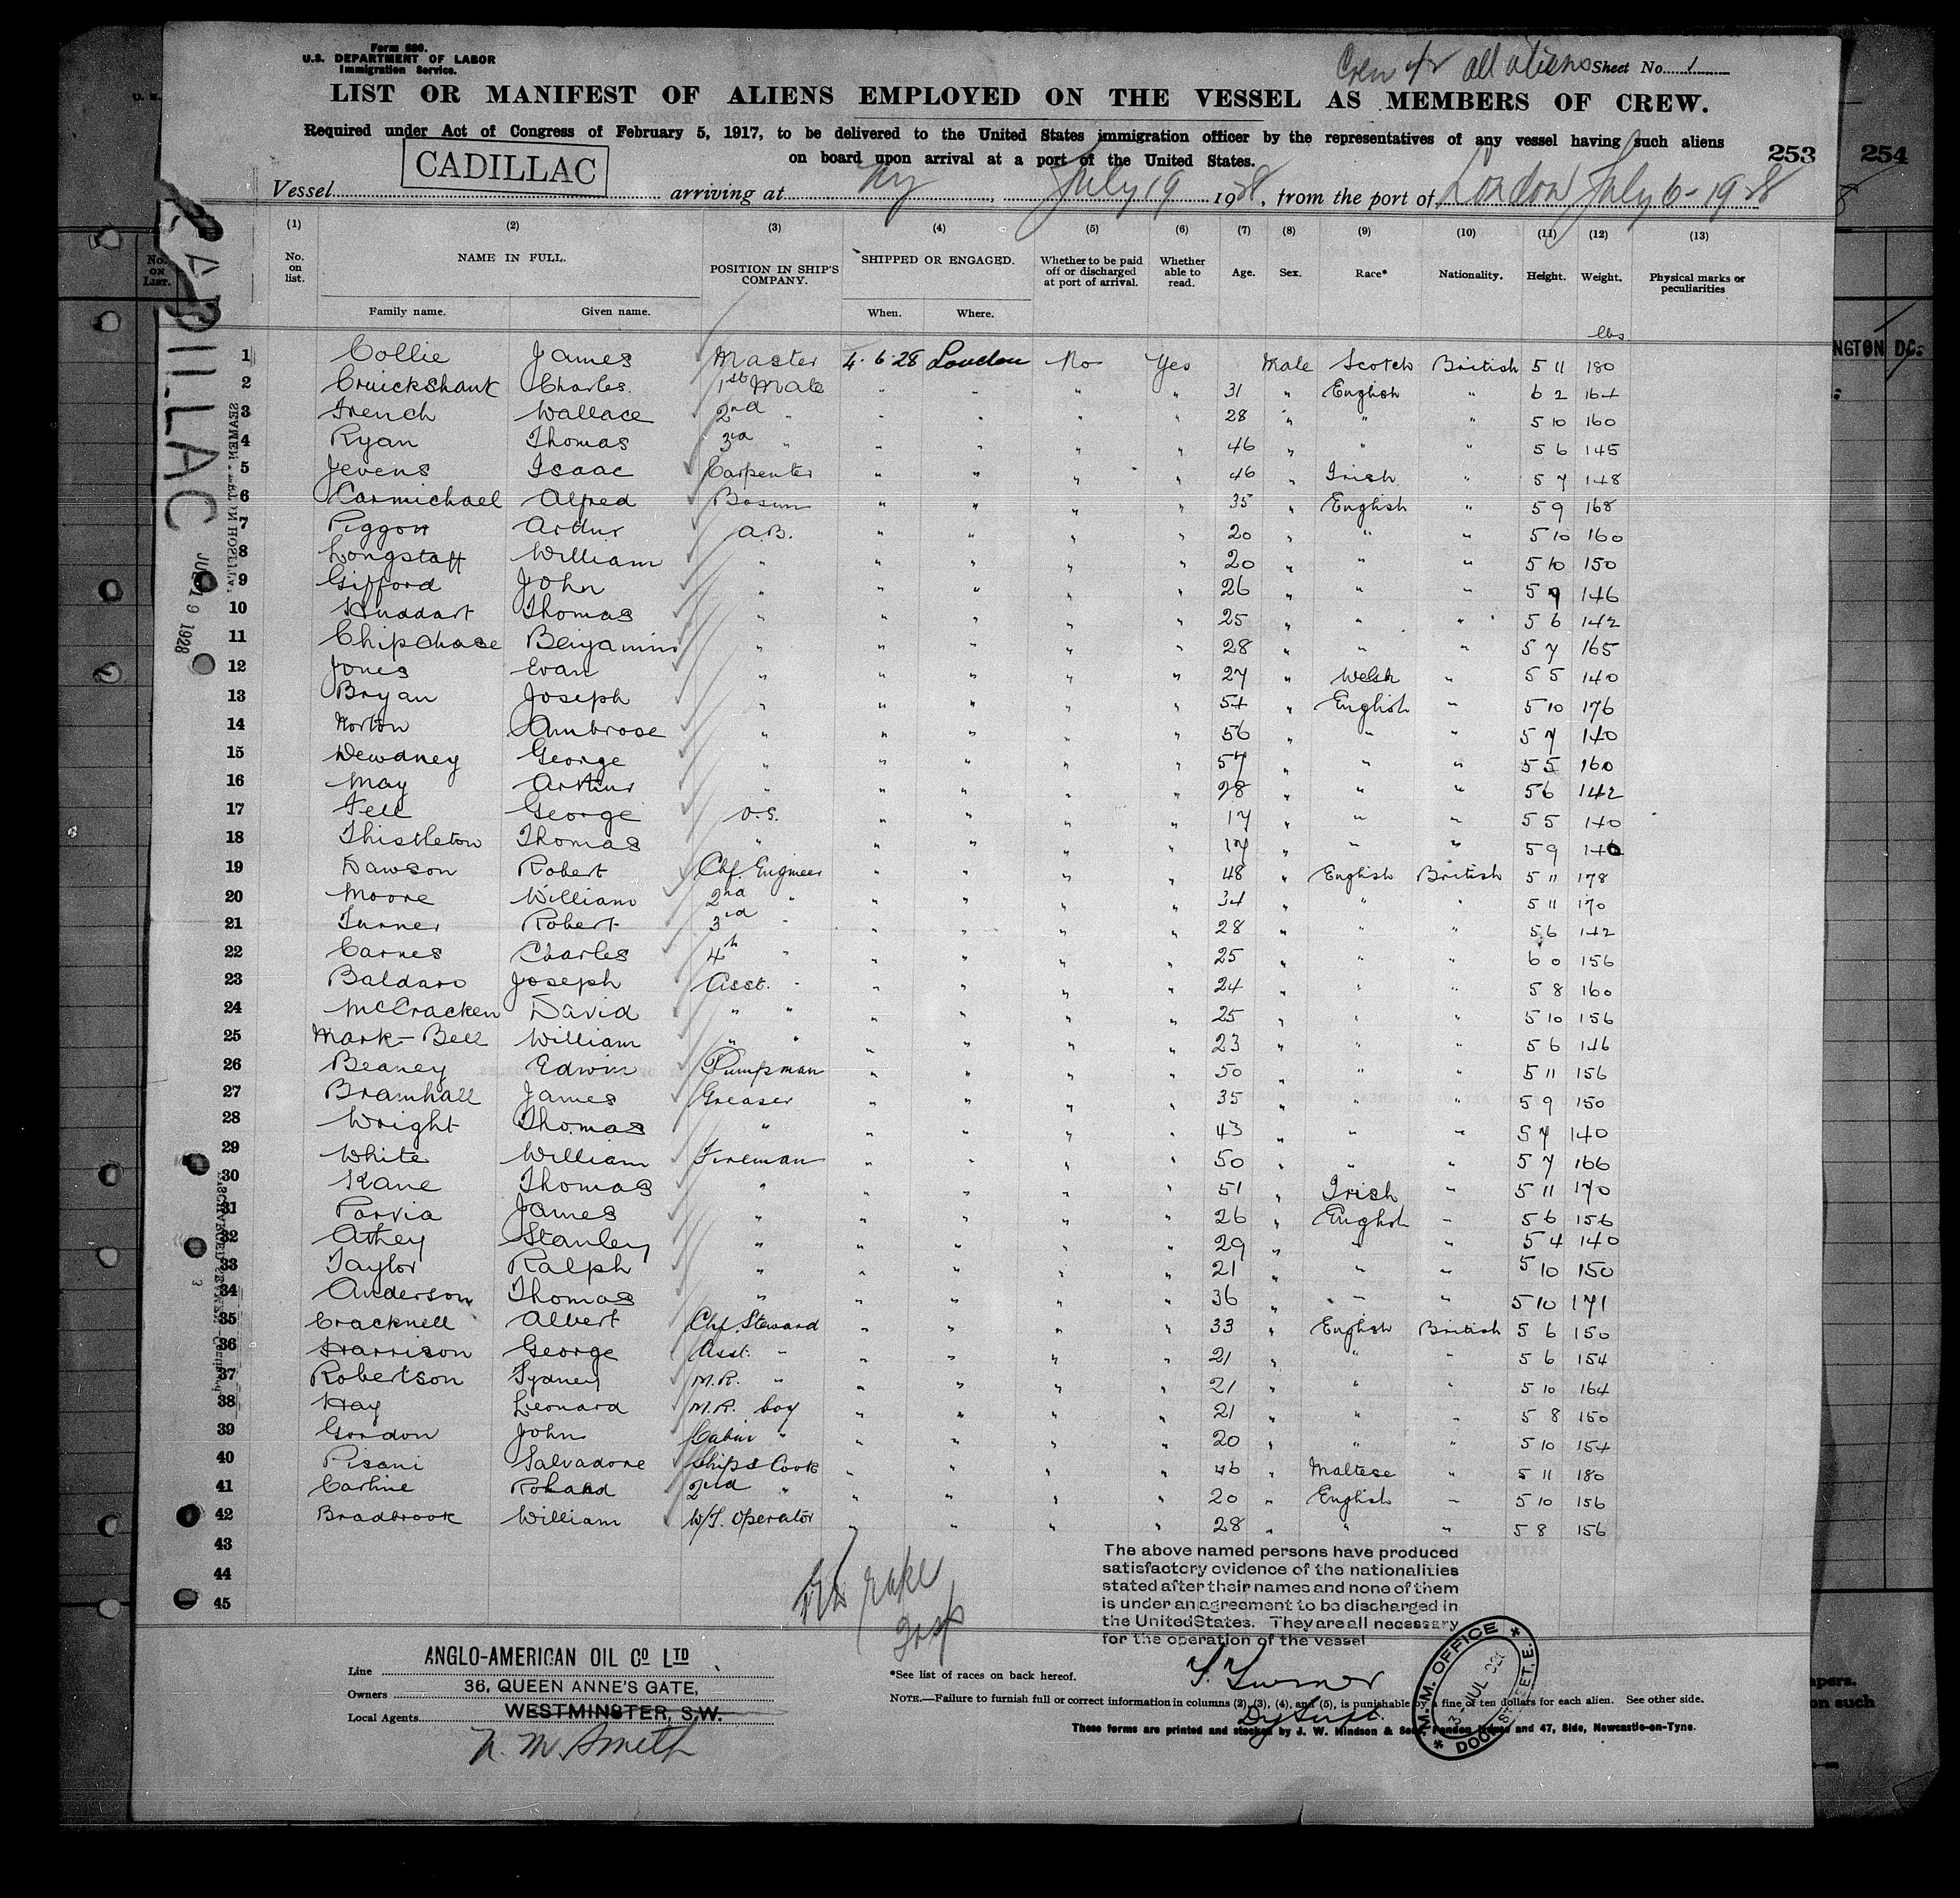 Form 680.
U.S. DEPARTMENT OF LABOR
Immigration Service.
Crew 42 all aliens Sheet No. 1
LIST OR MANIFEST OF ALIENS EMPLOYED ON THE VESSEL AS MEMBERS OF CREW.
Required under Act of Congress of February 5, 1917, to be delivered to the United States immigration officer by the representatives of any vessel having such aliens
on board upon arrival at a port of the United States.
253 254
Vessel CADILLAC arriving at NY, July 19 1928, from the port of London July 6-1928
(1) (2) (3) (4) (5) (6) (7) (8) (9) (10) (11) (12) (13)
No. on list. NAME IN FULL. POSITION IN SHIP'S COMPANY. SHIPPED OR ENGAGED. Whether to be paid off or discharged at port of arrival. Whether able to read. Age. Sex. Race* Nationality. Height. Weight. Physical marks or peculiarities
Family name. Given name. When. Where.
lbs
1 Collie James Master 4.6.28 London No Yes Male Scotch British 5 11 180
2 Cruickshank Charles. 1st Mate " " " " 31 " English " 6 2 164
3 French Wallace 2nd " " " " " 28 " " " 5 10 160
4 Ryan Thomas 3rd " " " " " 46 " " " 5 6 145
5 Jevens Isaac Carpenter " " " " 46 " Irish " 5 7 148
6 Carmichael Alfred Bosun " " " " 35 " English " 5 9 168
7 Piggott Arthur A.B. " " " " 20 " " " 5 10 160
8 Longstaff William " " " " " 20 " " " 5 10 150
9 Gifford John " " " " " 26 " " " 5 9 146
10 Huddart Thomas " " " " " 25 " " " 5 6 142
11 Chipchase Benjamin " " " " " 28 " " " 5 7 165
12 Jones Evan " " " " " 27 " Welsh " 5 5 140
13 Bryan Joseph " " " " " 54 " English " 5 10 176
14 Norton Ambrose " " " " " 56 " " " 5 7 140
15 Dewdney George " " " " " 57 " " " 5 5 160
16 May Arthur " " " " " 28 " " " 5 6 142
17 Fell George O.S. " " " " 17 " " " 5 5 140
18 Thistleton Thomas " " " " " 17 " " " 5 9 146
19 Dawson Robert Chf. Engineer " " " " 48 " English British 5 11 178
20 Moore William 2nd " " " " " 34 " " " 5 11 170
21 Turner Robert 3rd " " " " " 28 " " " 5 6 142
22 Carnes Charles 4th " " " " " 25 " " " 6 0 156
23 Baldaro Joseph Asst. " " " " " 24 " " " 5 8 160
24 McCracken David " " " " " " 25 " " " 5 10 156
25 Mark-Bell William " " " " " " 23 " " " 5 6 146
26 Beaney Edwin Pumpman " " " " 50 " " " 5 11 156
27 Bramhall James Greaser " " " " 35 " " " 5 9 150
28 Wright Thomas " " " " " 43 " " " 5 7 140
29 White William Fireman " " " " 50 " " " 5 7 166
30 Kane Thomas " " " " " 51 " Irish " 5 11 170
31 Parvia James " " " " " 26 " English " 5 6 156
32 Athey Stanley " " " " " 29 " " " 5 4 140
33 Taylor Ralph " " " " " 21 " " " 5 10 150
34 Anderson Thomas " " " " " 36 " " " 5 10 171
35 Cracknell Albert Chf. Steward " " " " 33 " English British 5 6 150
36 Harrison George Asst. " " " " " 21 " " " 5 6 154
37 Robertson Sydney M.R. " " " " " 21 " " " 5 10 164
38 Hay Leonard M.R. boy " " " " 21 " " " 5 8 150
39 Gordon John Cabin " " " " " 20 " " " 5 10 154
40 Pisani Salvadore Ships Cook " " " " 46 " Maltese " 5 11 180
41 Carline 2nd " " " " " 20 " English " 5 10 156
42 Bradbrook William W/T. Operator " " " " 28 " " " 5 8 156
43
44
45
The above named persons have produced
satisfactory evidence of the nationalities
stated after their names and none of them
is under an agreement to be discharged in
the United States. They are all necessary
for the operation of the vessel
Line ANGLO-AMERICAN OIL CO LTD
Owners 36, QUEEN ANNE'S GATE,
Local Agents WESTMINSTER, S.W.
N. M. Smith
*See list of races on back hereof.
T. Turner
Dy Supt.
M.M. OFFICE
3-JUL 1928
DOCK STREET, E.
NOTE.—Failure to furnish full or correct information in columns (2), (3), (4), and (5), is punishable by a fine of ten dollars for each alien. See other side.
These forms are printed and stocked by J. W. Hindson & Sons, and 47, Side, Newcastle-on-Tyne.
CADILLAC
19 1928
No. ON LIST.
NGTON DC:
apers.
on such